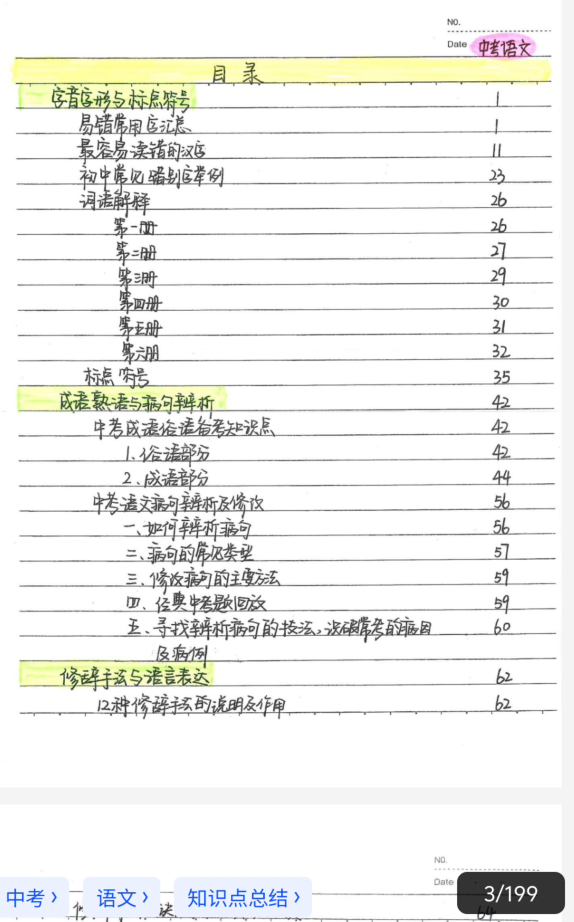 NO.
Date 中考语文
目录
字音字形与标点符号 1
易错常用字汇总 1
最容易读错的汉字 11
初中常见错别字举例 23
词语解释 26
第一册 26
第二册 27
第三册 29
第四册 30
第五册 31
第六册 32
标点符号 35
成语熟语与病句辨析 42
中考成语俗语备考知识点 42
1.俗语部分 42
2.成语部分 44
中考语文病句辨析及修改 56
一、如何辨析病句 56
二、病句的常见类型 57
三、修改病句的主要方法 59
四、经典中考题回放 59
五、寻找辨析病句的技法,说破常考的病因 60
及病例
修辞手法与语言表达 62
12种修辞手法的说明及作用 62
NO.
Date
中考 ›
语文 ›
知识点总结 ›
3/199
64